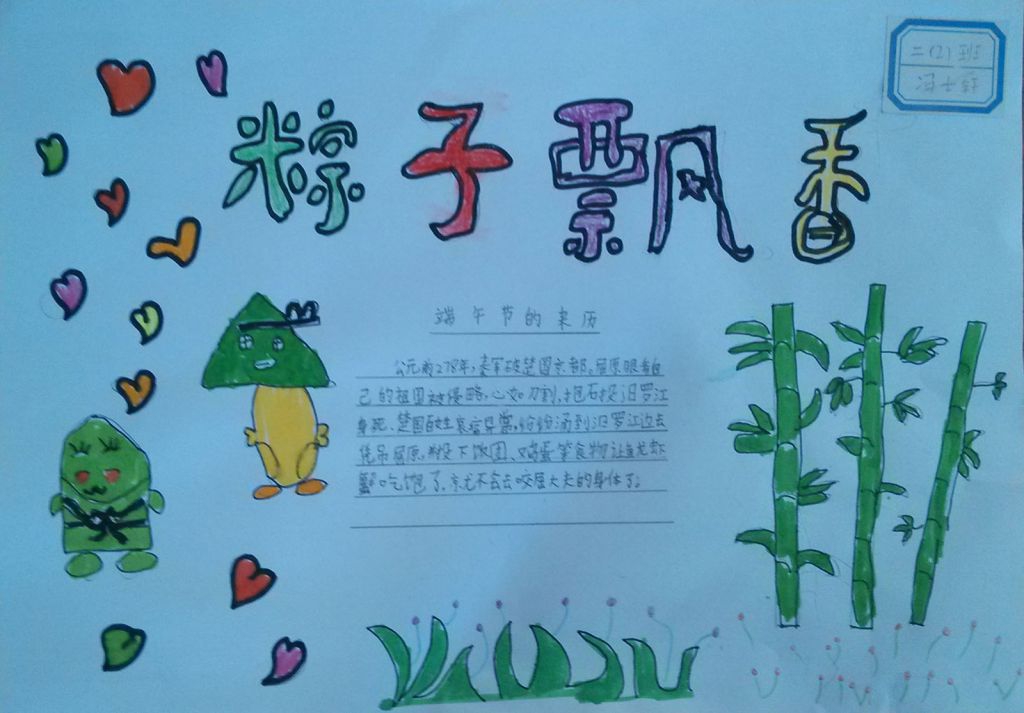 二(2)班
冯士轩
粽子飘香
端午节的来历
公元前278年,秦军破楚国京都。屈原眼看自
己的祖国被侵略,心如刀割,抱石投汨罗江
身死。楚国百姓哀痛异常,纷纷涌到汨罗江边去
凭吊屈原,投下饭团、鸡蛋等食物让鱼龙虾
蟹吃饱了,就不会去咬屈大夫的身体了。